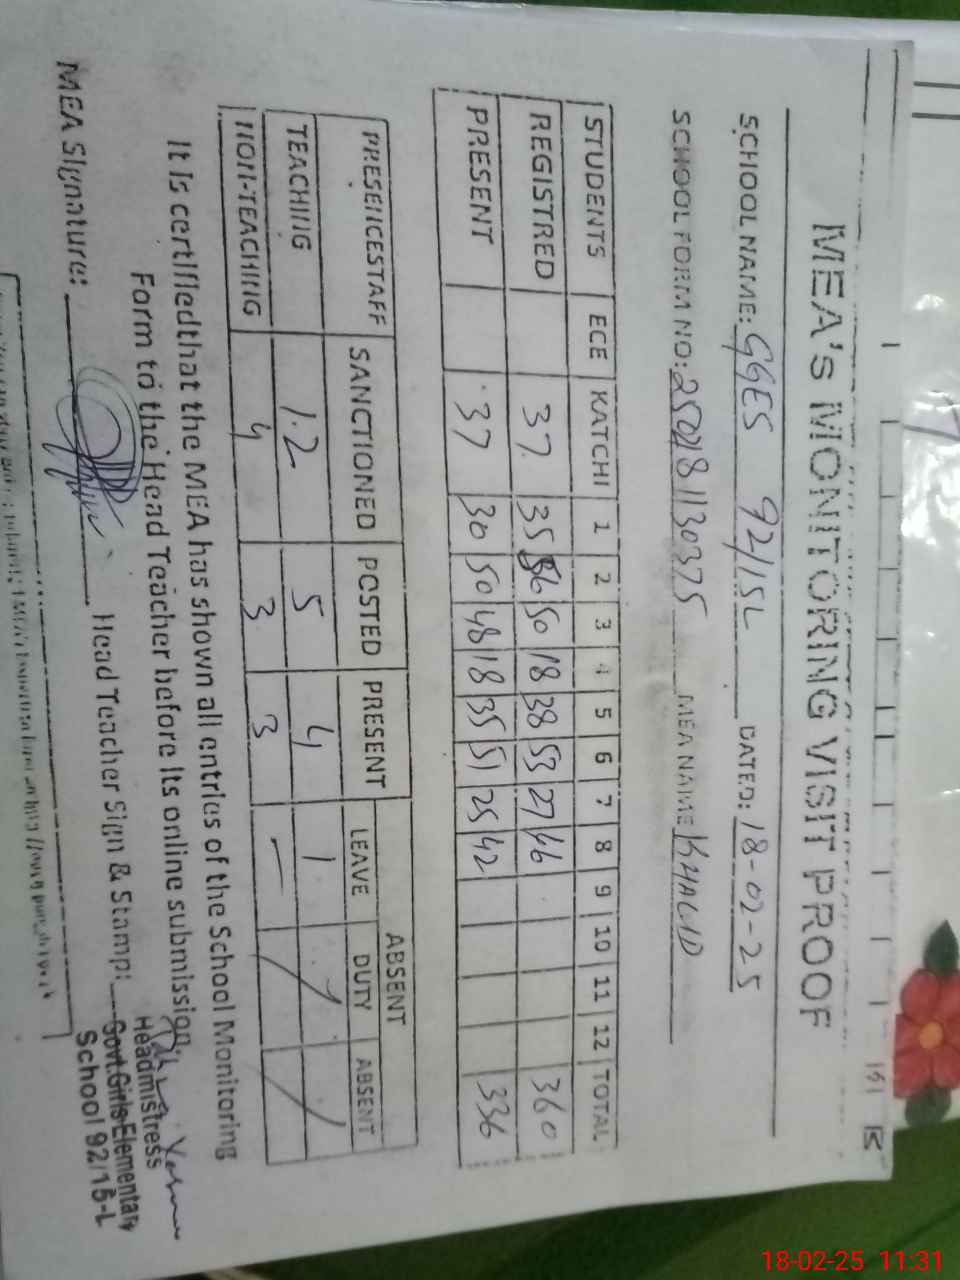 MEA's MONITORING VISIT PROOF
SCHOOL NAME: GGES 92/15L DATED: 18-02-25
SCHOOL FORM NO: 2502181130375 MEA NAME KHALID
STUDENTS ECE KATCHI 1 2 3 4 5 6 7 8 9 10 11 12 TOTAL
REGISTRED 37 35 56 50 18 38 53 27 46 360
PRESENT 37 30 50 48 18 35 51 25 42 336
PRESENCESTAFF SANCTIONED POSTED PRESENT ABSENT
LEAVE DUTY ABSENT
TEACHING 12 5 4 1 / /
NON-TEACHING 4 3 3 — /
It is certifiedthat the MEA has shown all entries of the School Monitoring
Form to the Head Teacher before its online submission.
MEA Signature: Head Teacher Sign & Stamp:
Headmistress
Govt.Girls Elementary
School 92/15-L
18-02-25 11:31